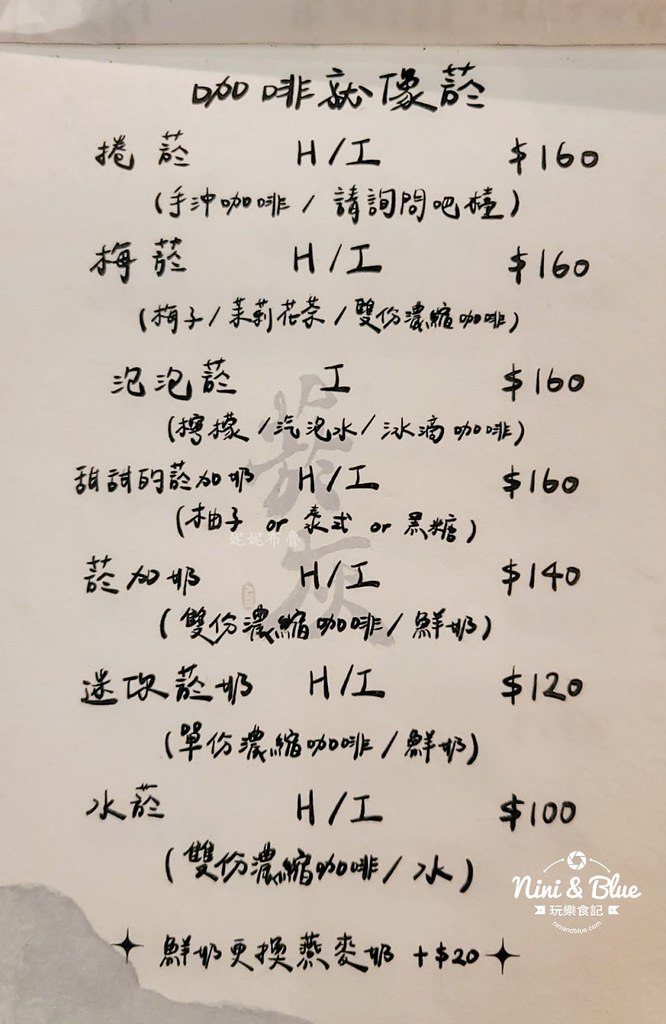 咖啡就像菸
捲菸 H/I $160
(手沖咖啡 / 請詢問吧檯)
梅菸 H/I $160
(梅子/茉莉花茶/雙份濃縮咖啡)
泡泡菸 I $160
(檸檬/汽泡水/冰滴咖啡)
甜甜的菸加奶 H/I $160
(柚子 or 泰式 or 黑糖)
菸加奶 H/I $140
(雙份濃縮咖啡/鮮奶)
迷你菸奶 H/I $120
(單份濃縮咖啡/鮮奶)
水菸 H/I $100
(雙份濃縮咖啡/水)
鮮奶更換燕麥奶 +$20
菸灰
妮妮布魯
Nini & Blue
玩樂食記
niniandblue.com